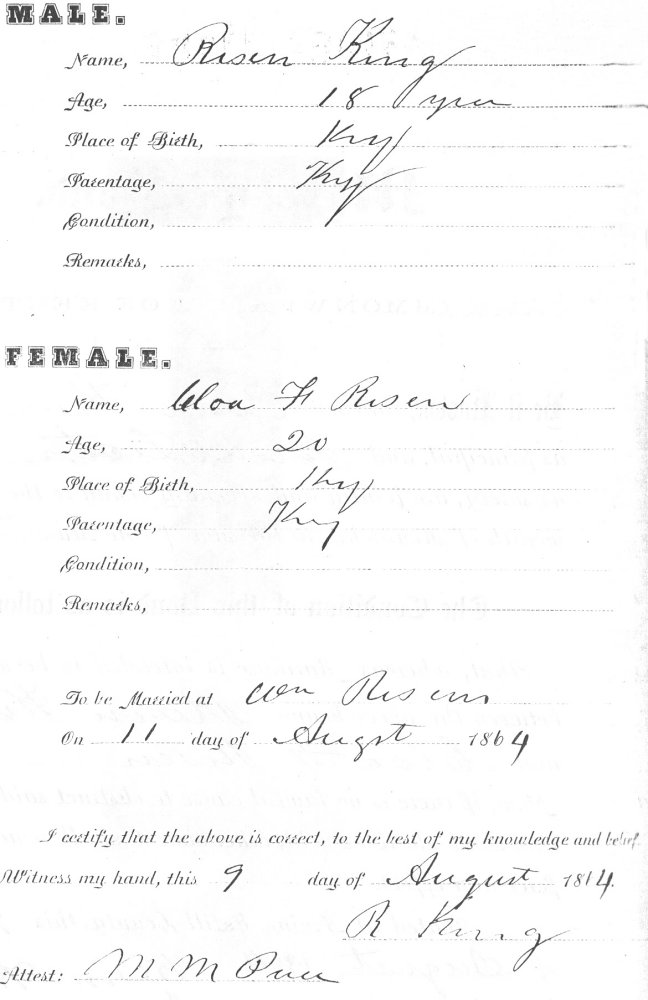 MALE.
Name, Risen King
Age, 18 yrs
Place of Birth, Ky
Parentage, Ky
Condition,
Remarks,
FEMALE.
Name, F Risen
Age, 20
Place of Birth, Ky
Parentage, Ky
Condition,
Remarks,
To be Married at Wm Risens
On 11 day of Augst 1864
I certify that the above is correct, to the best of my knowledge and belief.
Witness my hand, this 9 day of August 1864.
R King
Attest: M M